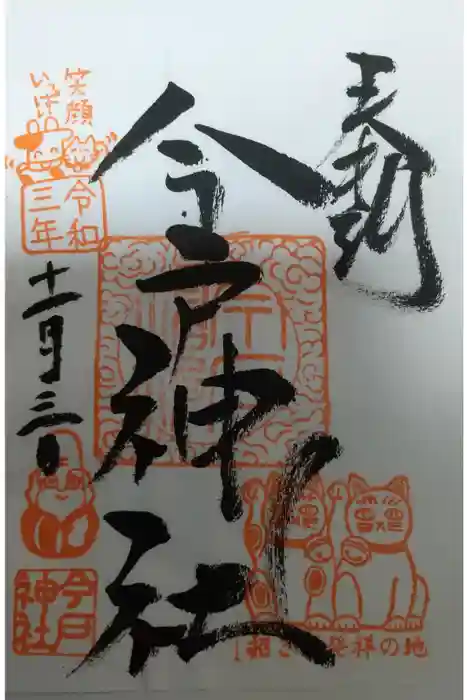 奉拝
今戸神社
笑顔
いっぱい
令和
三年
十一月三日
今戸
神社
招き猫発祥の地